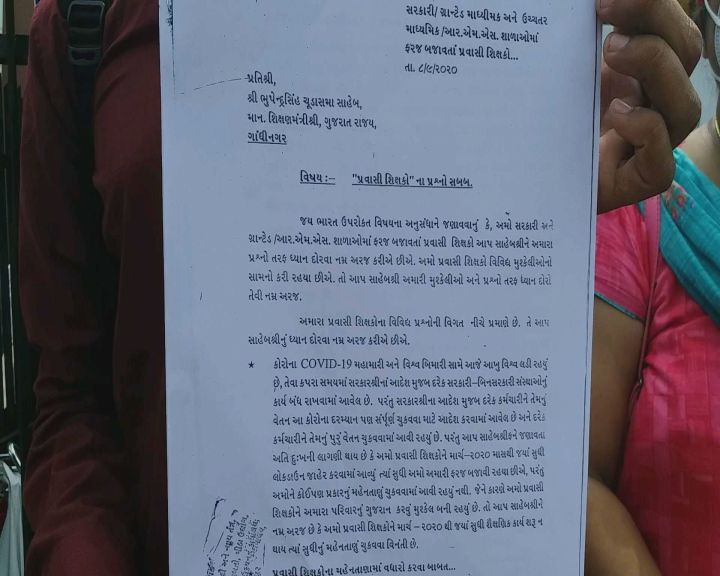 સરકારી/ ગ્રાન્ટેડ માધ્યીમક અને ઉચ્ચતર
માધ્યમિક /આર.એમ.એસ. શાળાઓમાં
ફરજ બજાવતાં પ્રવાસી શિક્ષકો...
તા. ૮/૯/૨૦૨૦
પ્રતિશ્રી,
શ્રી ભુપેન્દ્રસિંહ ચૂડાસમા સાહેબ,
માન. શિક્ષણમંત્રીશ્રી, ગુજરાત રાજય,
ગાંધીનગર
વિષય :– "પ્રવાસી શિક્ષકો" ના પ્રશ્નો સબબ.
જય ભારત ઉપરોકત વિષયના અનુસંધાને જણાવવાનું કે, અમો સરકારી અને
ગ્રાન્ટેડ /આર.એમ.એસ. શાળાઓમાં ફરજ બજાવતાં પ્રવાસી શિક્ષકો આપ સાહેબશ્રીને અમારા
પ્રશ્નો તરફ ધ્યાન દોરવા નમ્ર અરજ કરીએ છીએ. અમો પ્રવાસી શિક્ષકો વિવિધ મુશ્કેલીઓનો
સામનો કરી રહયા છીએ. તો આપ સાહેબશ્રી અમારી મુશ્કેલીઓ અને પ્રશ્નો તરફ ધ્યાન દોરો
તેવી નમ્ર અરજ.
અમારા પ્રવાસી શિક્ષકોના વિવિધ પ્રશ્નોની વિગત નીચે પ્રમાણે છે. તે આપ
સાહેબશ્રીનું ધ્યાન દોરવા નમ્ર અરજ કરીએ છીએ.
* કોરોના COVID-19 મહામારી અને વિશ્વ બિમારી સામે આજે આખુ વિશ્વ લડી રહયું
છે, તેવા કપરા સમયમાં સરકારશ્રીનાં આદેશ મુજબ દરેક સરકારી–બિનસરકારી સંસ્થાઓનું
કાર્ય બંધ રાખવામાં આવેલ છે. પરંતુ સરકારશ્રીના આદેશ મુજબ દરેક કર્મચારીને તેમનું
વેતન આ કોરોના દરમ્યાન પણ સંર્પૂણ ચુકવવા માટે આદેશ કરવામાં આવેલ છે અને દરેક
કર્મચારીને તેમનુ પુરૂં વેતન ચુકવવામાં આવી રહયું છે. પરંતુ આપ સાહેબશ્રીફને જણાવતા
અતિ દુઃખની લાગણી થાય છે કે અમો પ્રવાસી શિક્ષકોને માર્ચ–૨૦૨૦ માસથી જયાં સુધી
લોકડાઉન જાહેર કરવામાં આવ્યું ત્યાં સુધી અમો અમારી ફરજ બજાવી રહયા છીએ, પરંતુ
અમોને કોઈપણ પ્રકારનું મહેનતાણું ચુકવવામાં આવી રહયું નથી. જેને કારણે અમો પ્રવાસી
શિક્ષકોને અમારા પરિવારનું ગુજરાન કરવું મુશ્કેલ બની રહયું છે. તો આપ સાહેબશ્રીને
નમ્ર અરજ છે કે અમો પ્રવાસી શિક્ષકોને માર્ચ – ૨૦૨૦ થી જયાં સુધી શૈક્ષણિક કાર્ય શરૂ ન
થાય ત્યાં સુધીનું મહેનતાણું ચુકવવા વિનંતી છે.
પ્રવાસી શિક્ષકોના મહેનતાણામાં વધારો કરવા બાબત...